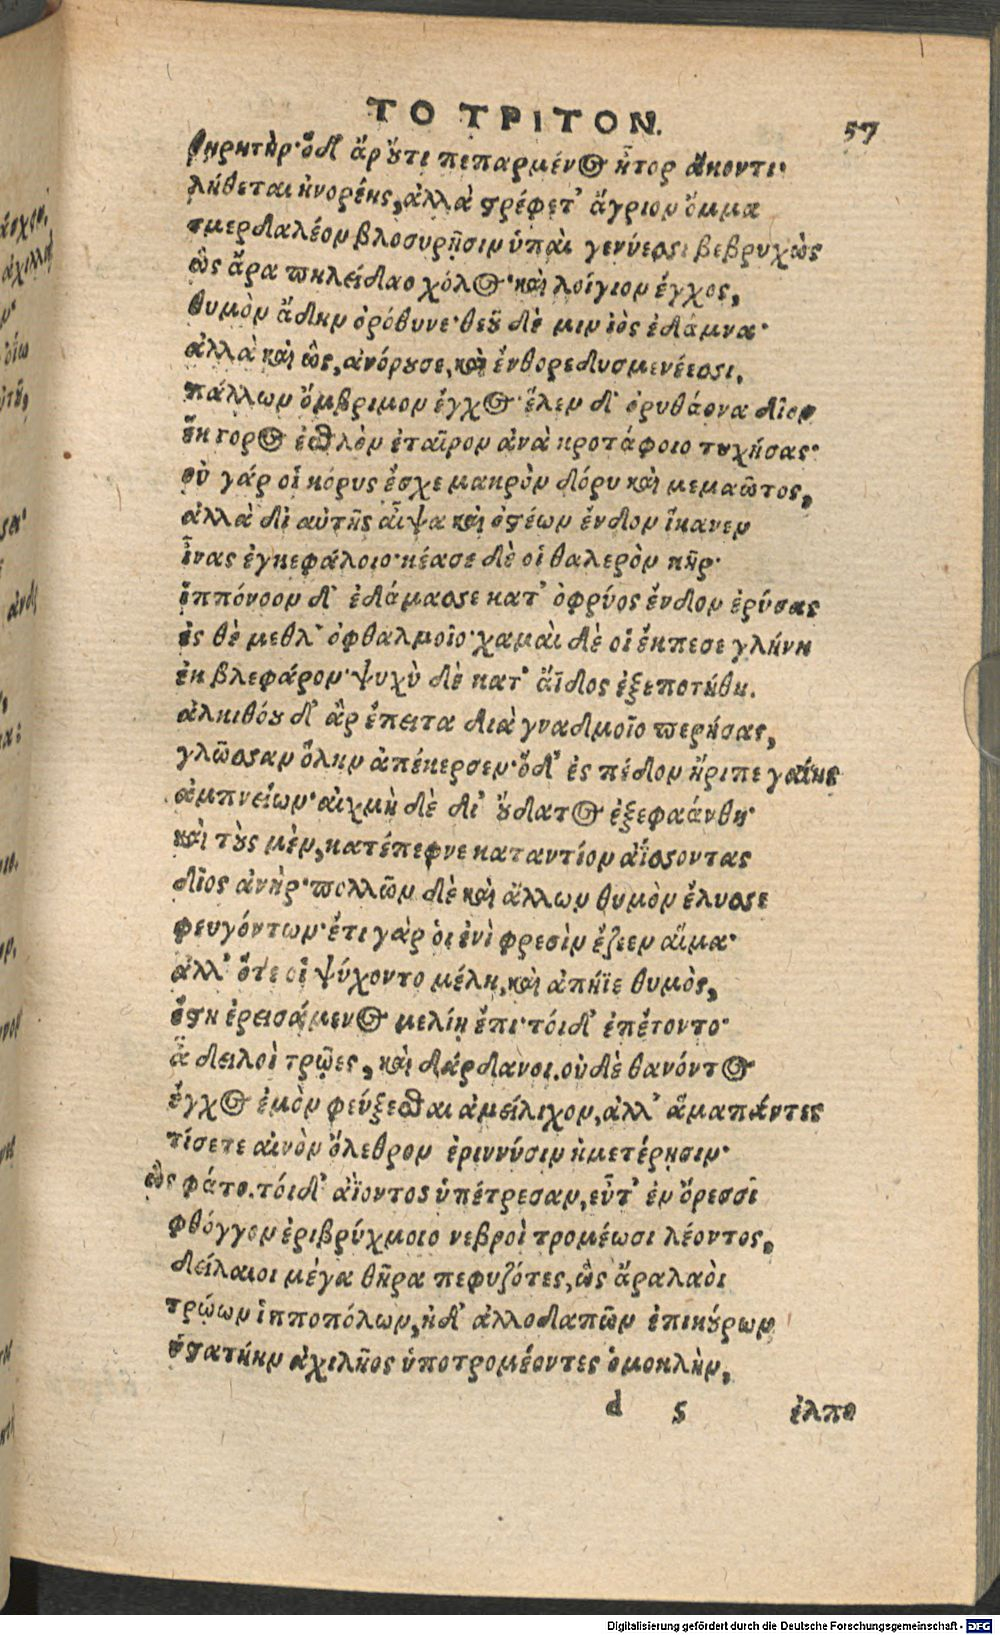 ΤΟ ΤΡΙΤΟΝ. 57
θηρητὴρ· ὁ δ' ἄρ οὔτι πεπαρμένος ἦτορ ἄκοντι·
λήθεται ἠνορέης, ἀλλὰ στρέφετ' ἄγριον ὄμμα
σμερδαλέον βλοσυρῇσιν ὑπαὶ γενύεσσι βεβρυχὼς
ὣς ἄρα πηλείδαο χόλος· καὶ λοίγιον ἔγχος,
θυμὸν ἄδην ὀρόθυνε· θεοῦ δὲ μιν ἰὸς ἐδάμνα·
ἀλλὰ καὶ ὣς, ἀνόρουσε, καὶ ἔνθορε δυσμενέεσσι.
πάλλων ὄμβριμον ἔγχος· ἕλεν δ' ὀρυθάονα δῖον
ἕκτορος ἐσθλὸν ἑταῖρον ἀνὰ κροτάφοιο τυχήσας·
οὐ γάρ οἱ κόρυς ἔσχε μακρὸν δόρυ καὶ μεμαῶτος,
ἀλλὰ δι αὐτῆς αἶψα καὶ ὀστέων ἔνδον ἵκανεν
ἶνας ἐγκεφάλοιο· κέασε δὲ οἱ θαλερὸν κῆρ·
ἱππόνοον δ' ἐδάμασσε κατ' ὀφρύος ἔνδον ἐρύσας
ἐς θὲ μεθλ' ὀφθαλμοῖο· χαμαὶ δὲ οἱ ἔκπεσε γλήνη
ἐκ βλεφάρον· ψυχὺ δὲ κατ' ἄϊδος ἐξεποτήθη.
ἀλκιθόου δ' ἂρ ἔπειτα διὰ γναδμοῖο περήσας,
γλῶσσαν ὅλην ἀπέκερσεν· ὁ δ' ἐς πέδον ἤριπε γαίης
ἀμπνείων· αἰχμὴ δὲ δι' οὔδατος ἐξεφαάνθη·
καὶ τοὺς μὲν, κατέπεφνε καταντίον ἀΐσσοντας
δῖος ἀνὴρ· πολλῶν δὲ καὶ ἄλλων θυμὸν ἔλυσσε
φευγόντων· ἔτι γὰρ ὁι ἐνὶ φρεσὶν ἔζεεν αἷμα·
ἀλλ' ὅτε οἱ ψύχοντο μέλη, καὶ ἀπήϊε θυμὸς,
ἔστη ἐρεισάμενος μελίη ἔπι· τόι δ' ἐπέτοντο·
ἆ δειλοὶ τρῶες, καὶ δάρδανοι. οὐδὲ θανόντος
ἔγχος ἐμὸν φεύξεσθαι ἀμείλιχον, ἀλλ' ἅμα πάντες
τίσετε αἰνὸν ὄλεθρον ἐριννύσιν ἡμετέρησιν·
ὣς φάτο. τόι δ' ἀΐοντος ὑπέτρεσαν, εὖτ' ἐν ὄρεσσὶ
φθόγγον ἐριβρύχμοιο νεβροὶ τρομέωσι λέοντος,
δείλαιοι μέγα θῆρα πεφυζότες, ὣς ἄρα λαὸι
τρώων ἱπποπόλων, ἠδ' ἀλλοδαπῶν ἐπικούρων
ὑστατίην ἀχιλῆος ὑποτρομέοντες ὁμοκλὴν,
d 5 ἐλπο
Digitalisierung gefördert durch die Deutsche Forschungsgemeinschaft - DFG